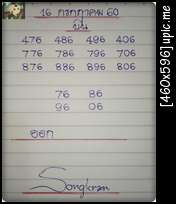 16 กรกฎาคม 60
บน
476 486 496 406
776 786 796 706
876 886 896 806
76 86
96 06
ออก
Songkran
[460x596] upic.me